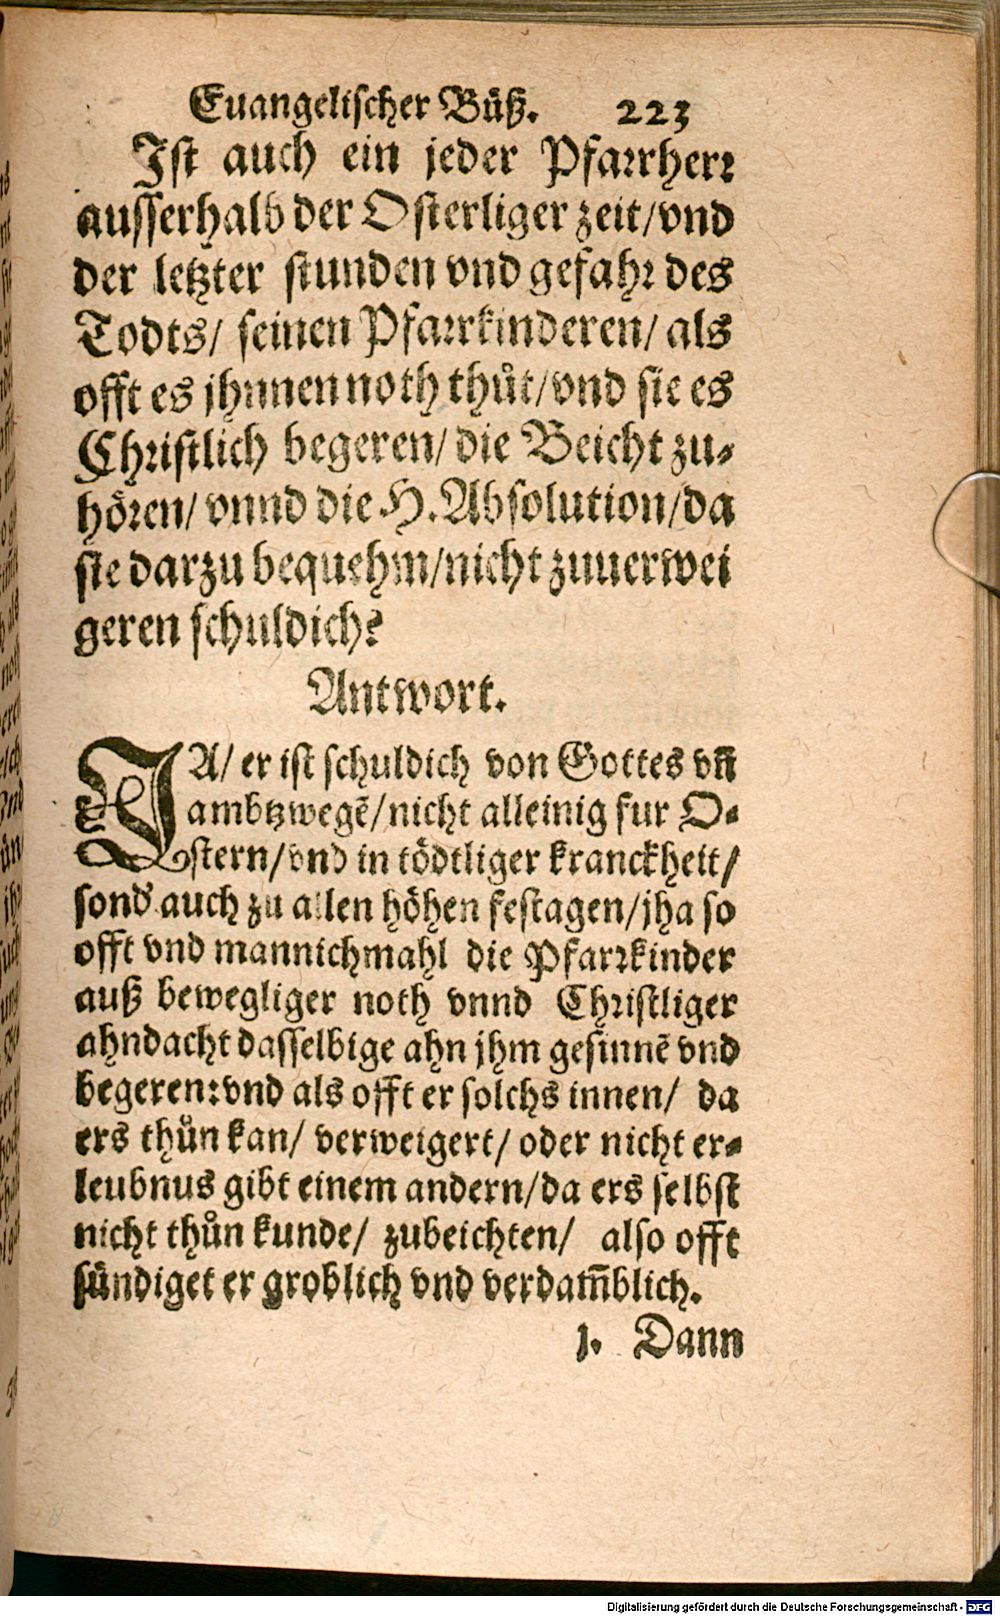 Euangelischer Büß. 223
Ist auch ein jeder Pfarrherr
ausserhalb der Osterliger zeit/vnd
der letzter stunden vnd gefahr des
Todts/ seinen Pfarrkinderen/ als
offt es jhnnen noth thůt/vnd sie es
Christlich begeren/ die Beicht zu-
hören/ vnnd die H. Absolution/da
sie darzu bequehm/nicht zuuerwei
geren schuldich?
Antwort.
JA/ er ist schuldich von Gottes vñ
ambtzwegẽ/nicht alleinig fur O-
stern/vnd in tödtliger kranckheit/
sond' auch zu allen höhen festagen/jha so
offt vnd mannichmahl die Pfarrkinder
auß bewegliger noth vnnd Christliger
ahndacht dasselbige ahn jhm gesinnẽ vnd
begeren: vnd als offt er solchs innen/ da
ers thůn kan/ verweigert/ oder nicht er-
leubnus gibt einem andern/da ers selbst
nicht thůn kunde/ zubeichten/ also offt
sündiget er groblich vnd verdam̃blich.
1. Dann
Digitalisierung gefördert durch die Deutsche Forschungsgemeinschaft - DFG